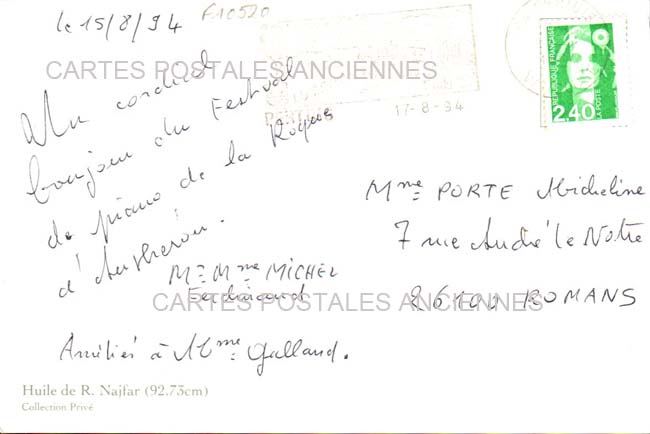 le 15/8/94
F10520
CARTES POSTALES ANCIENNES
17-8-94
RÉPUBLIQUE FRANÇAISE
LA POSTE
2,40
Un cordial
bonjour du Festival
de piano de la Roque
d'Anthéron.
Mr Mme MICHEL
Ferdinand
Amitiés à Mme Galland.
Mme PORTE Micheline
7 rue André le Notre
26100 ROMANS
CARTES POSTALES ANCIENNES
Huile de R. Najfar (92.73cm)
Collection Privé